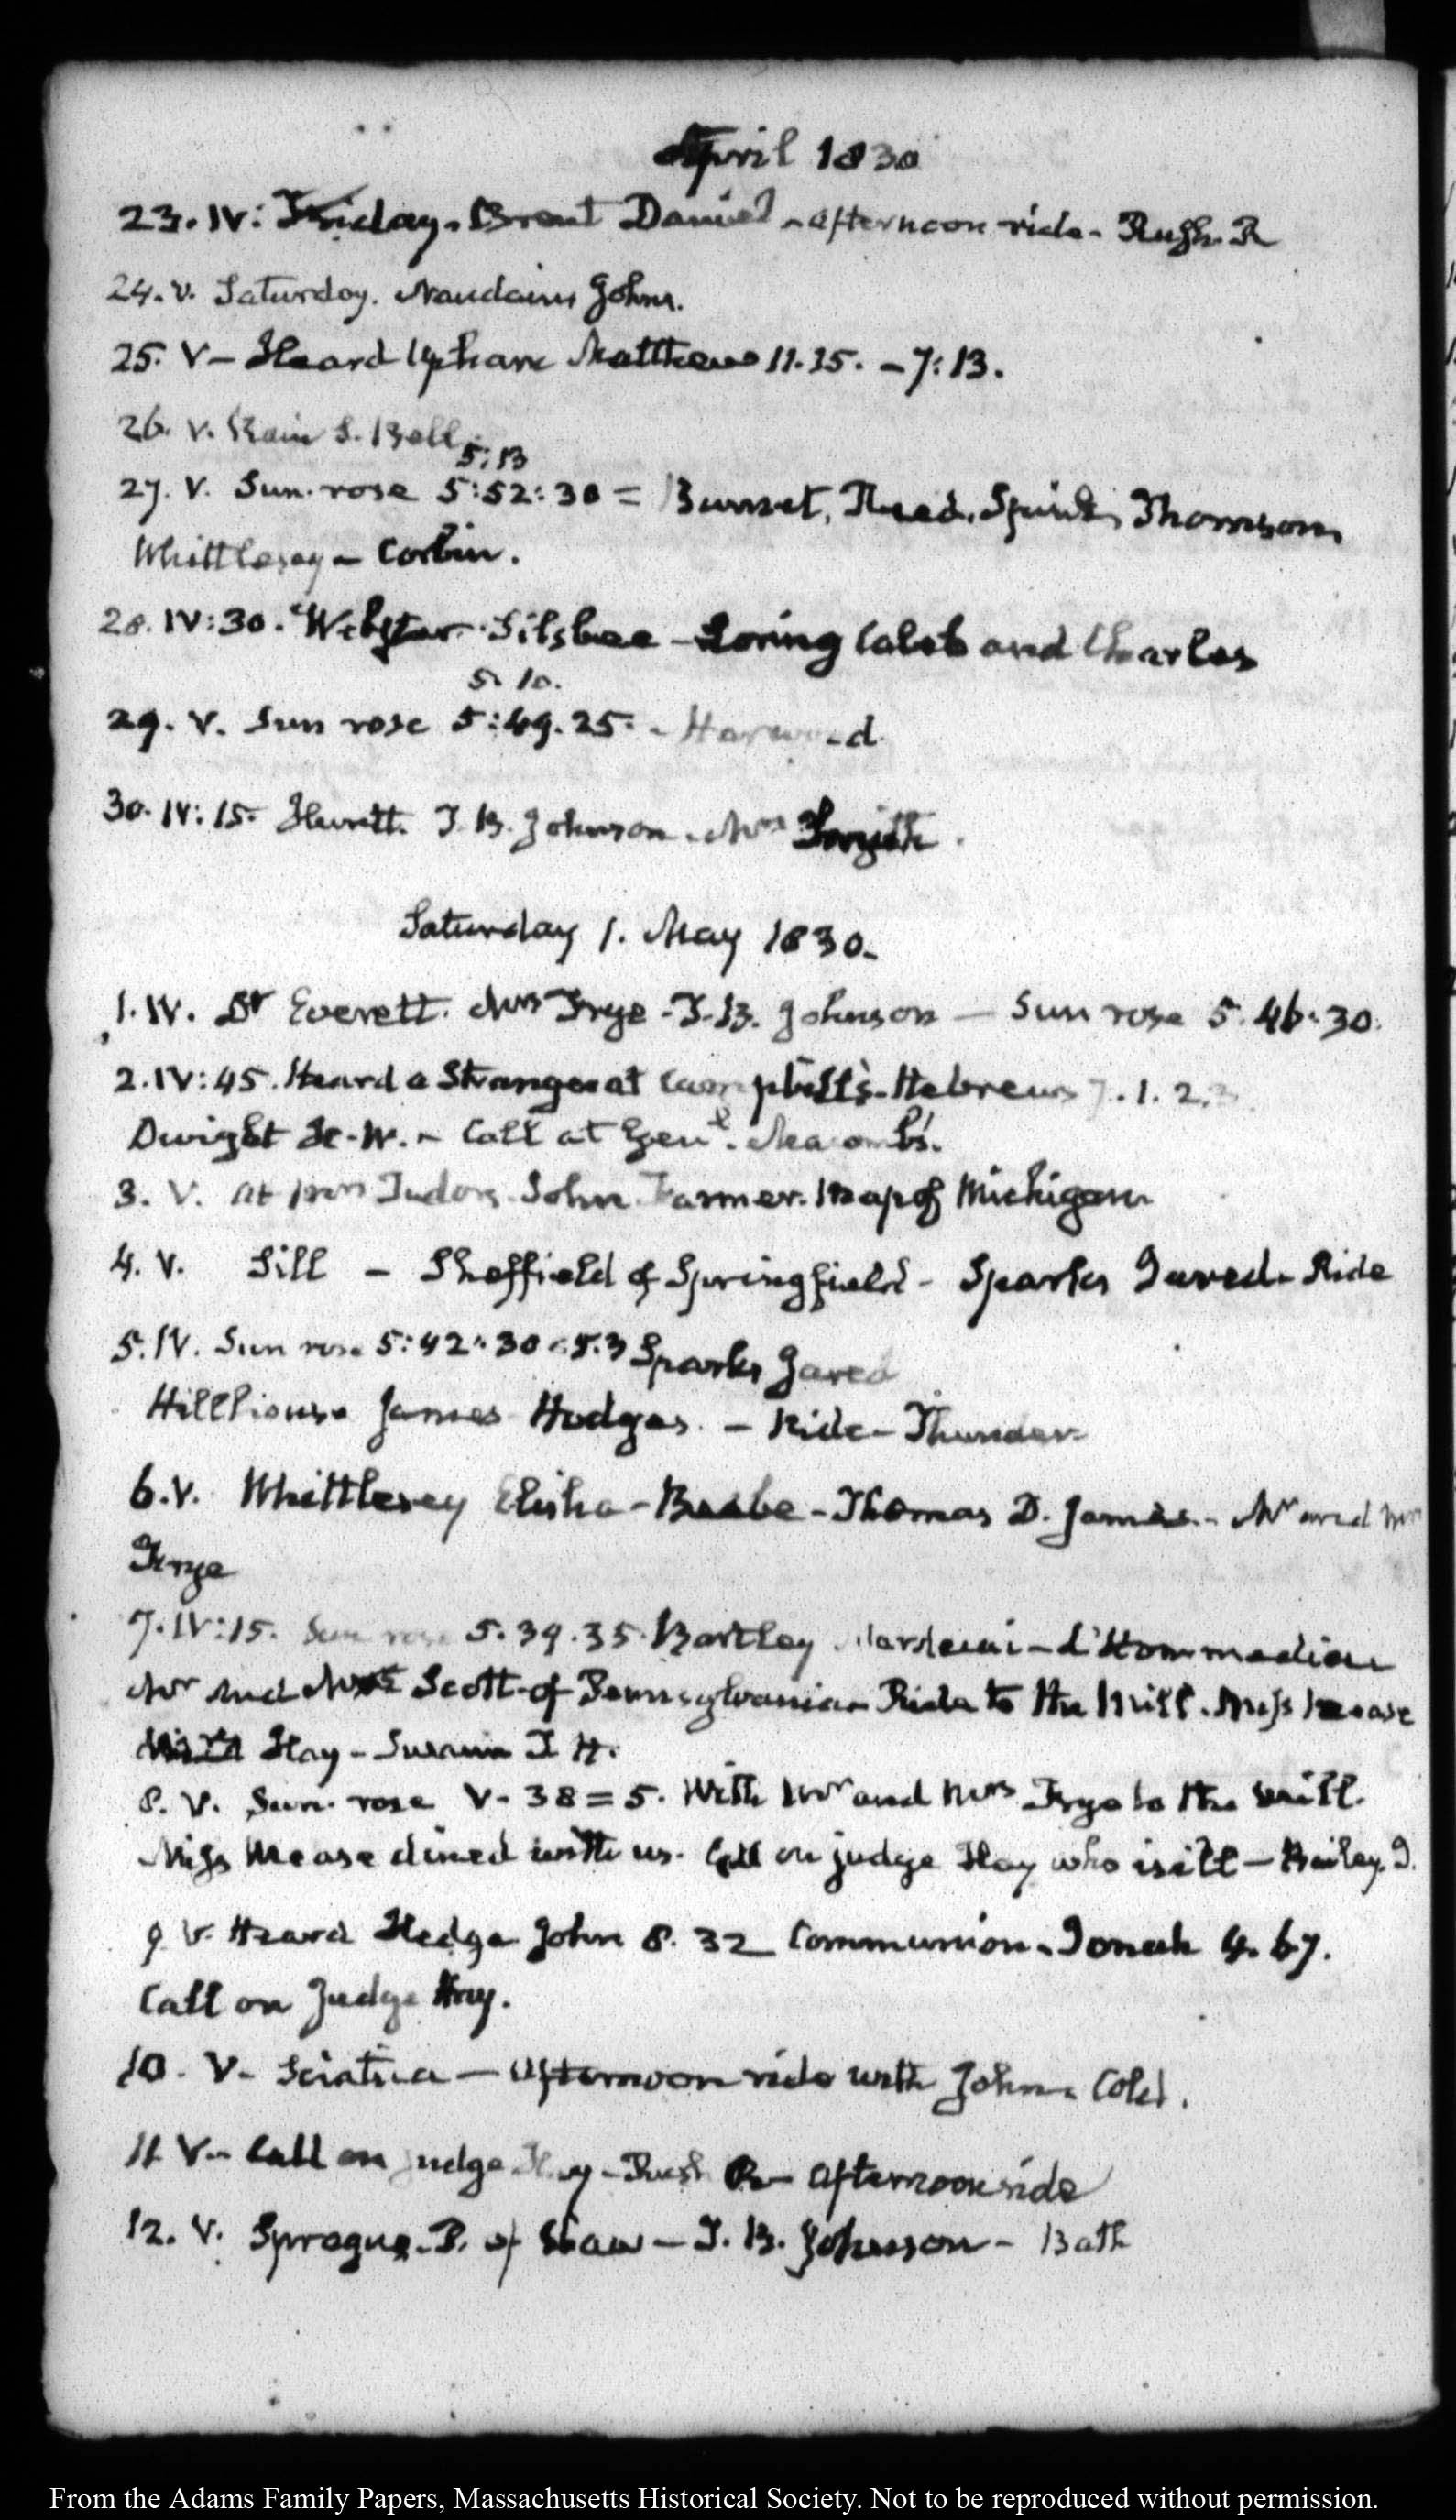 April 1830
23. IV: Friday. Brent Daniel - afternoon ride - Rush. R
24. V. Saturday. Naudain Johns.
25. V - Heard Upham Matthew 11. 15. - 7: 13.
26. V. Rain S. Bell
5:13
27. V. Sun. rose 5:52:30 = Burnet, Reed, Thomson
Whittlesey - Corbin.
28. IV:30. Webster. Silsbee - Loring Caleb and Charles
5. 10.
29. V. Sun rose 5:49. 25.
30. IV: 15. T. B. Johnson. Mrs Smith.
Saturday 1. May 1830.
1. IV. Dr Everett. Mrs Frye - T. B. Johnson - Sun rose 5. 46:30.
2. IV:45. Heard a Stranger at Campbell's. Hebrews 7. 1. 2.3
Dwight H. W. - Call at Genl. Macomb's.
3. V. at Mrs Tudor's John Farmer. Map of Michigan
4. V. Sill - Sheffield of Springfield - Sparks Jared - Ride
5. IV. Sun rose 5:42:30 5.3 Sparks Jared
Hillhouse James Hodges. - Ride - Thunder
6. V. Whittlesey Elisha - Beebe - Thomas D. James - Mr and Mrs
Frye
7. IV:15. Sun rose 5. 39. 35. Bartley Mordecai - d'Hommedieu
Mr and Mrs Scott of Pennsylvania - Ride to the Mill. Miss Mease
Hay - T H.
8. V. Sun. rose V- 38 = 5. With Mr and Mrs Frye to the Mill.
Miss Mease dined with us. Call on judge Hay who is ill - Bailey. J.
9. V. Heard Hedge John 8. 32 Communion. Jonah 4. 6.7.
Call on Judge Hay.
10. V. Sciatica - Afternoon ride with John. Cold.
11. V - Call on judge Hay - Rush R - afternoon ride
12. V. Sprague. P. of - T. B. Johnson - Bath
From the Adams Family Papers, Massachusetts Historical Society. Not to be reproduced without permission.